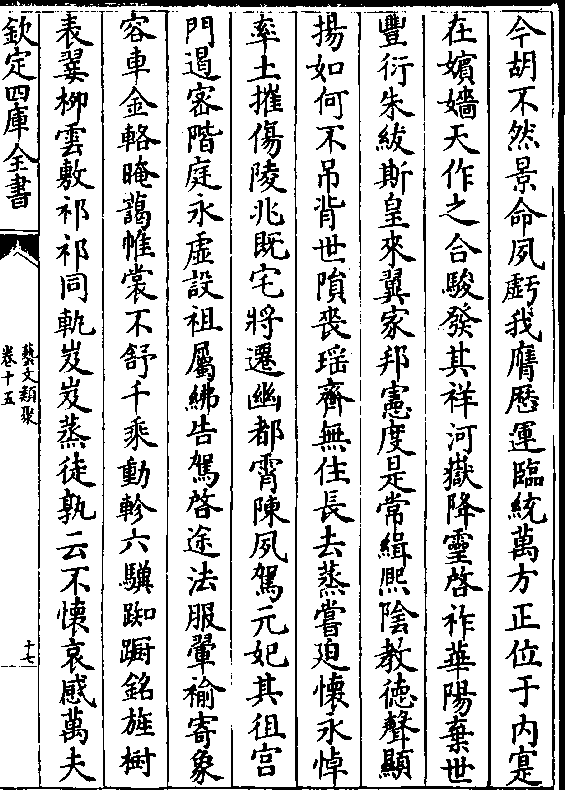 今胡不然景命夙虧我膺厯運臨統萬方正位于内寔
在嬪嬙天作之合駿發其祥河嶽降靈啓祚華陽棄世
豐衍朱紱斯皇來翼家邦憲度是常緝熙陰教德聲顯
揚如何不吊背世隕喪瑶齋無住長去蒸嘗廹懷永悼
率土摧傷陵兆既宅將遷幽都宵陳夙駕元妃其徂宫
門遏密階庭永虚設祖屬紼告駕啓途法服翬褕寄象
容車金輅晻藹帷裳不舒千乘動軫六驥踟蹰銘旌樹
表翣栁雲敷祁祁同軌岌岌蒸徒孰云不懐哀感萬夫
欽定四庫全書
藝文類聚
卷十五
十七